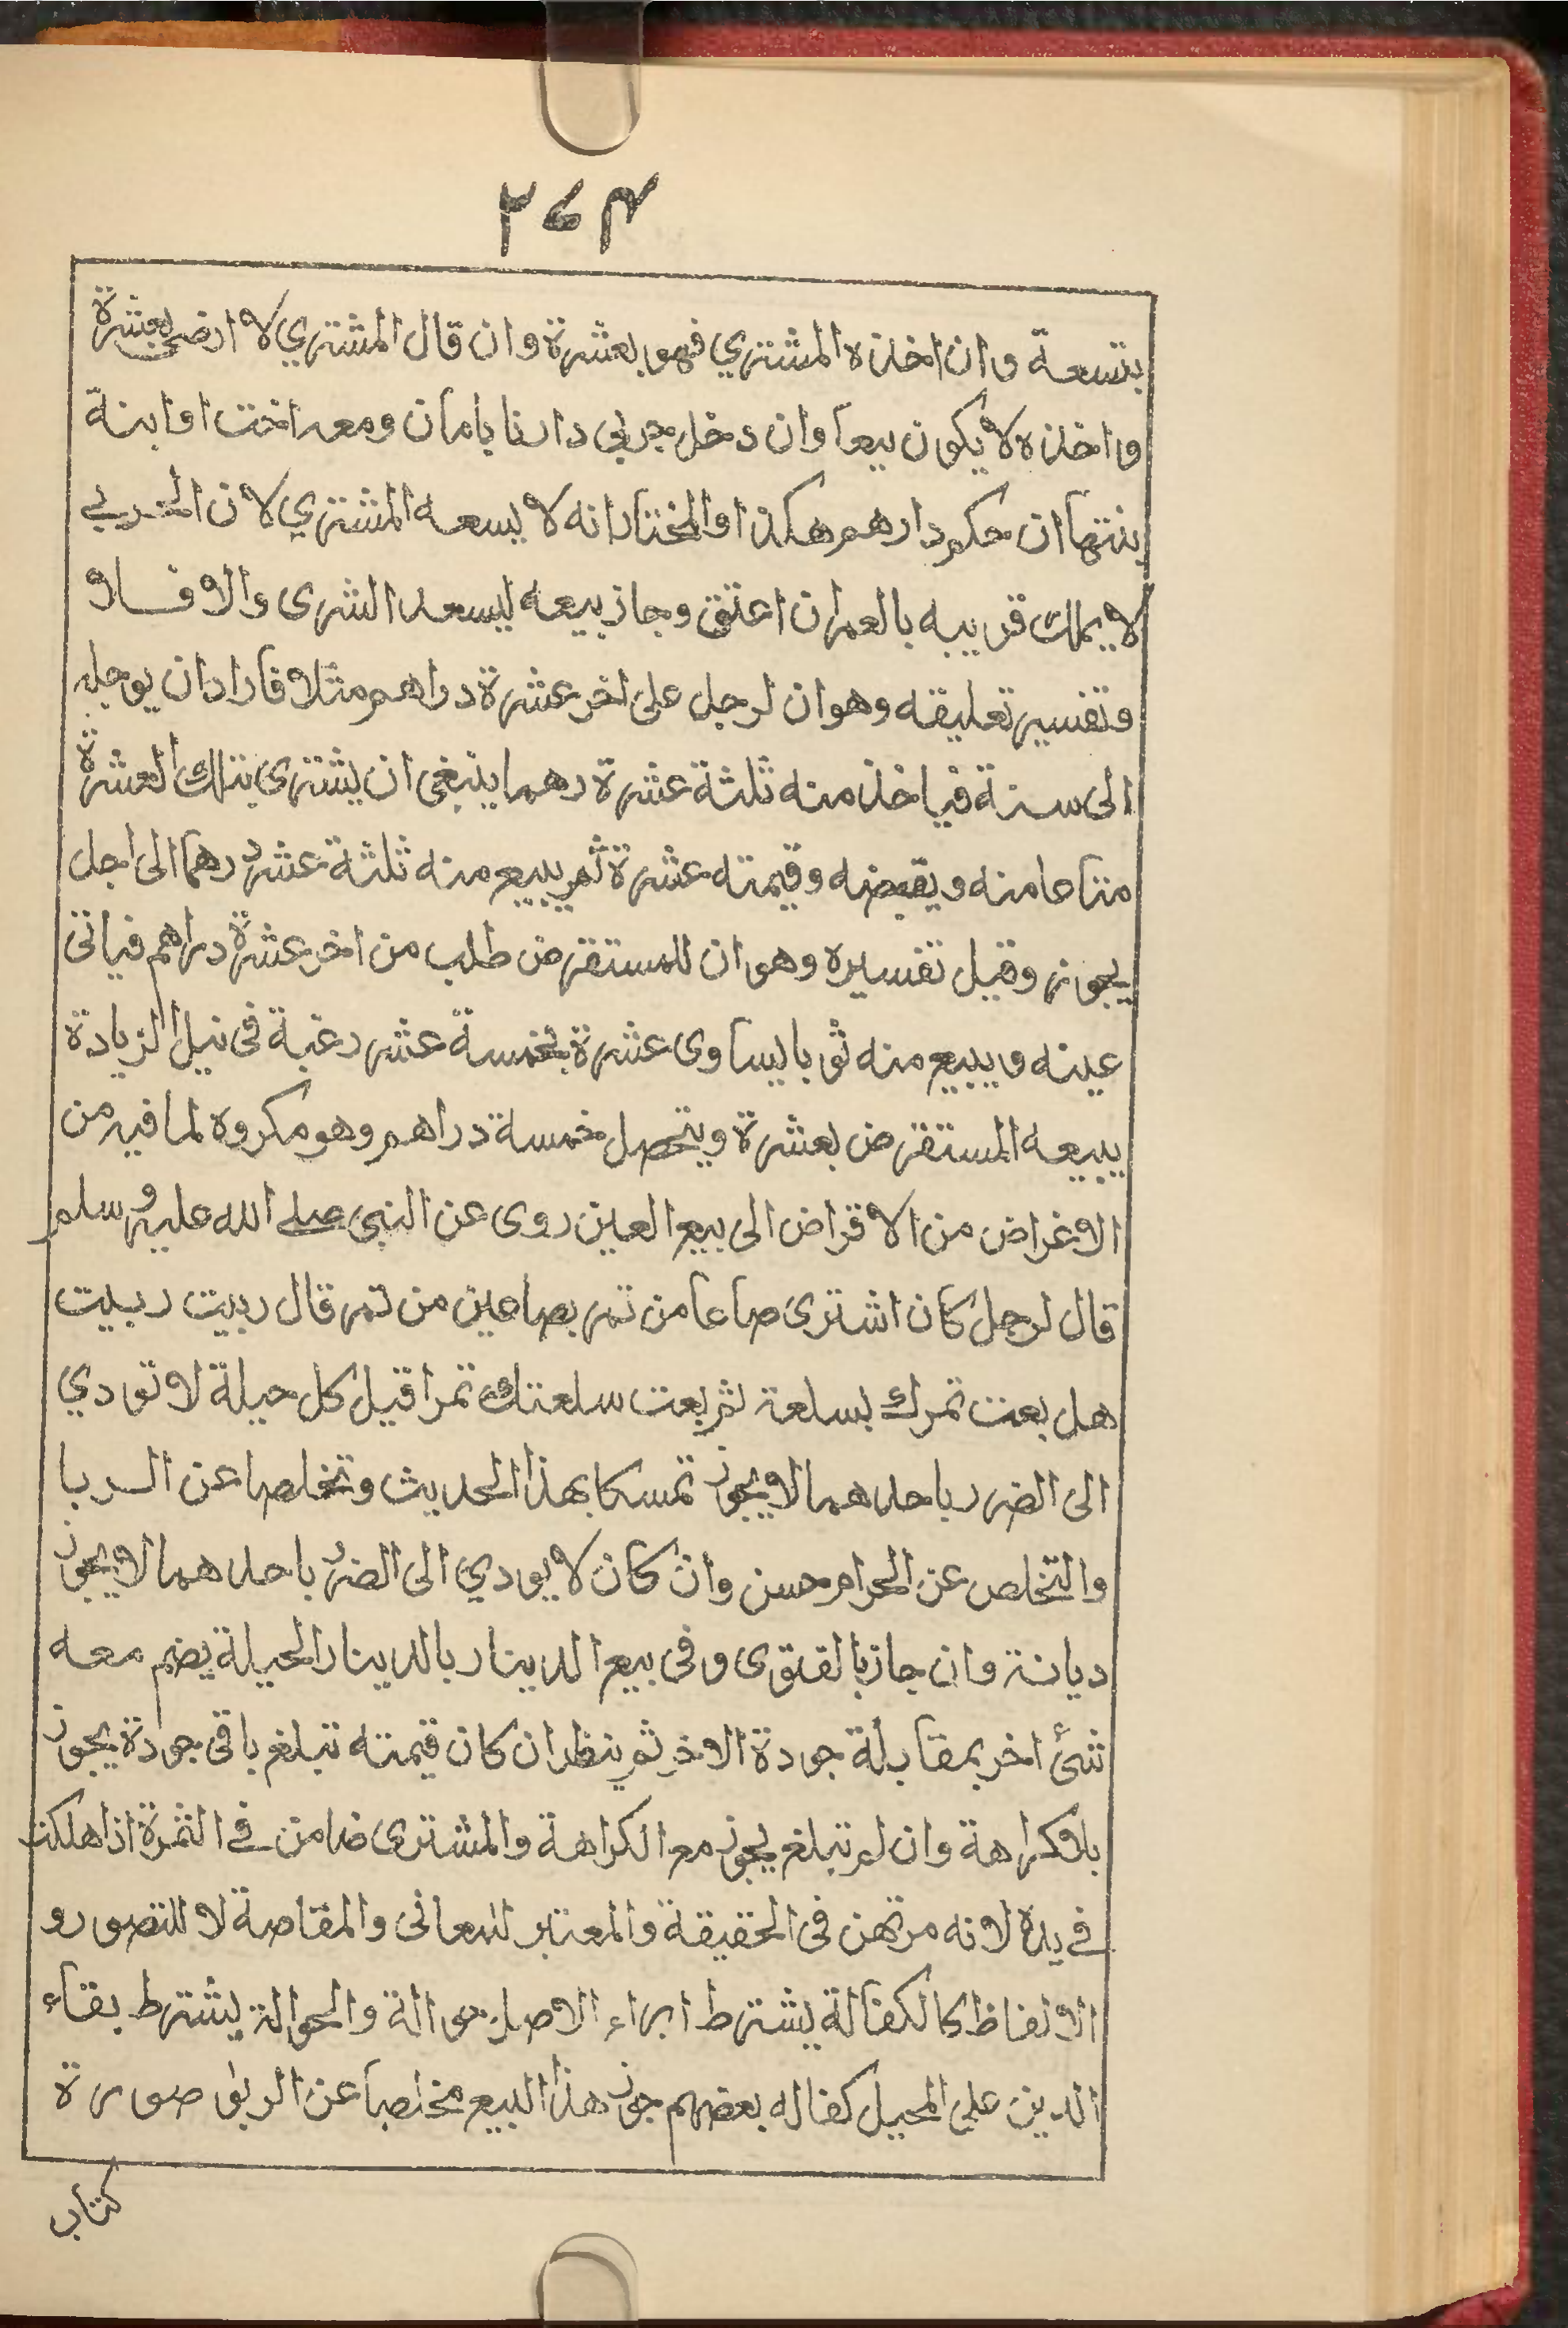 ٢٧٤
بتسعة وان اخذه المشتري فهو بعشرة وان قال المشتري لا ارضى بعشرة
واخذه لا يكون بيعا وان دخل حربي دارنا بامان ومعه اخت او ابنة
ان حكم دارهم هكذا والمختار انه لا يسعه المشتري لان الحربي
لا يملك قريبه بالعمران اعتق وجاز بيعه ليسعه الشرى والا فلا
وتفسير تعليقه وهو ان لرجل على اخر عشرة دراهم مثلا فاراد ان يوجله
الى سنة فياخذ منه ثلثة عشرة رهما ينبغى ان يشترى بتلك العشرة
متاعا منه ويقبضه وقيمته عشرة ثم يبيع منه ثلثة عشر درهما الى اجل
يجوز وقيل تفسيره وهو ان للمستقرض طلب من اخر عشرة دراهم فياتى
عينه ويبيع منه ثوبا يساوى عشرة بخمسة عشر رغبة فى نيل الزيادة
يبيعه المستقرض بعشرة ويتحصل خمسة دراهم وهو مكروه لما فيه من
الاغراض من الاقراض الى بيع العين روى عن النبى صلى الله عليه وسلم
قال لرجل كان اشترى صاعا من تمر بصاعين من تمر قال ربيت ربيت
هل بعت تمرك بسلعة ثم بعت سلعتك تمرا قيل كل حيلة لا تودي
الى الضرر باحدهما لا يجوز تمسكا بهذا الحديث وتخلصا عن الربا
والتخلص عن الحرام حسن وان كان لا يودي الى الضرر باحدهما لا يجوز
ديانة وان جاز بالفتوى وفى بيع الدينار بالدينار الحيلة يضم معه
شئ اخر بمقابلة جودة الاخر ثم ينظر ان كان قيمته تبلغ باقى جودة يجوز
بلا كراهة وان لم تبلغ يجوز مع الكراهة والمشترى ضامن في الثمرة اذا هلكت
في يده لانه مرتهن فى الحقيقة والمعتبر للمعانى والمقاصة لا للتصور و
الالفاظ كالكفالة يشترط ابراء الاصيل حوالة والحوالة يشترط بقاء
الدين على المحيل كفاله بعضهم جوز هذا البيع مخلصا عن الربوا صورة
كتاب